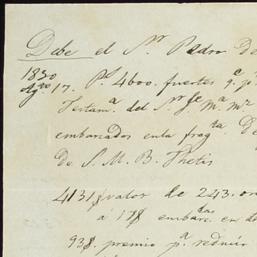 Debe el Sr. Pedro De
1830
Agto 17. Ps. 4600. fuertes q.e p.r
Testam.a del Sr. Je. Ma. Mz
embarcados en la frag.ta De
De S. M. B. Thetis
4131$ valor de 243. on
á 17$ embarc.das en do
93$. premio p.a reduúr